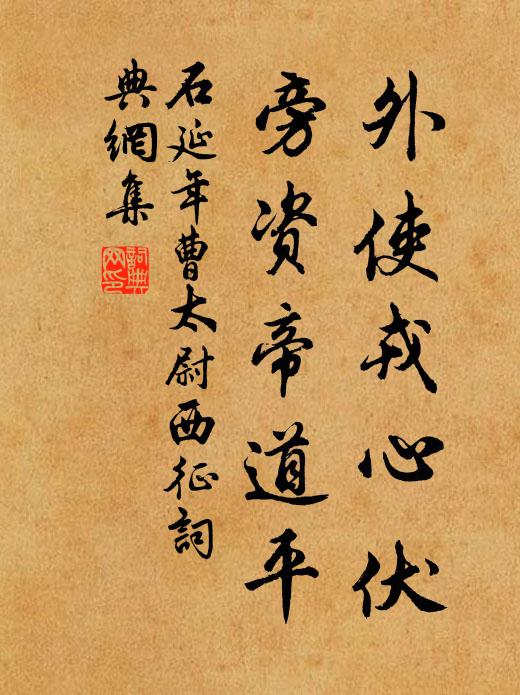 外使戎心伏
旁資帝道平
石延年曹太尉西征詞
典網集
詞典網印